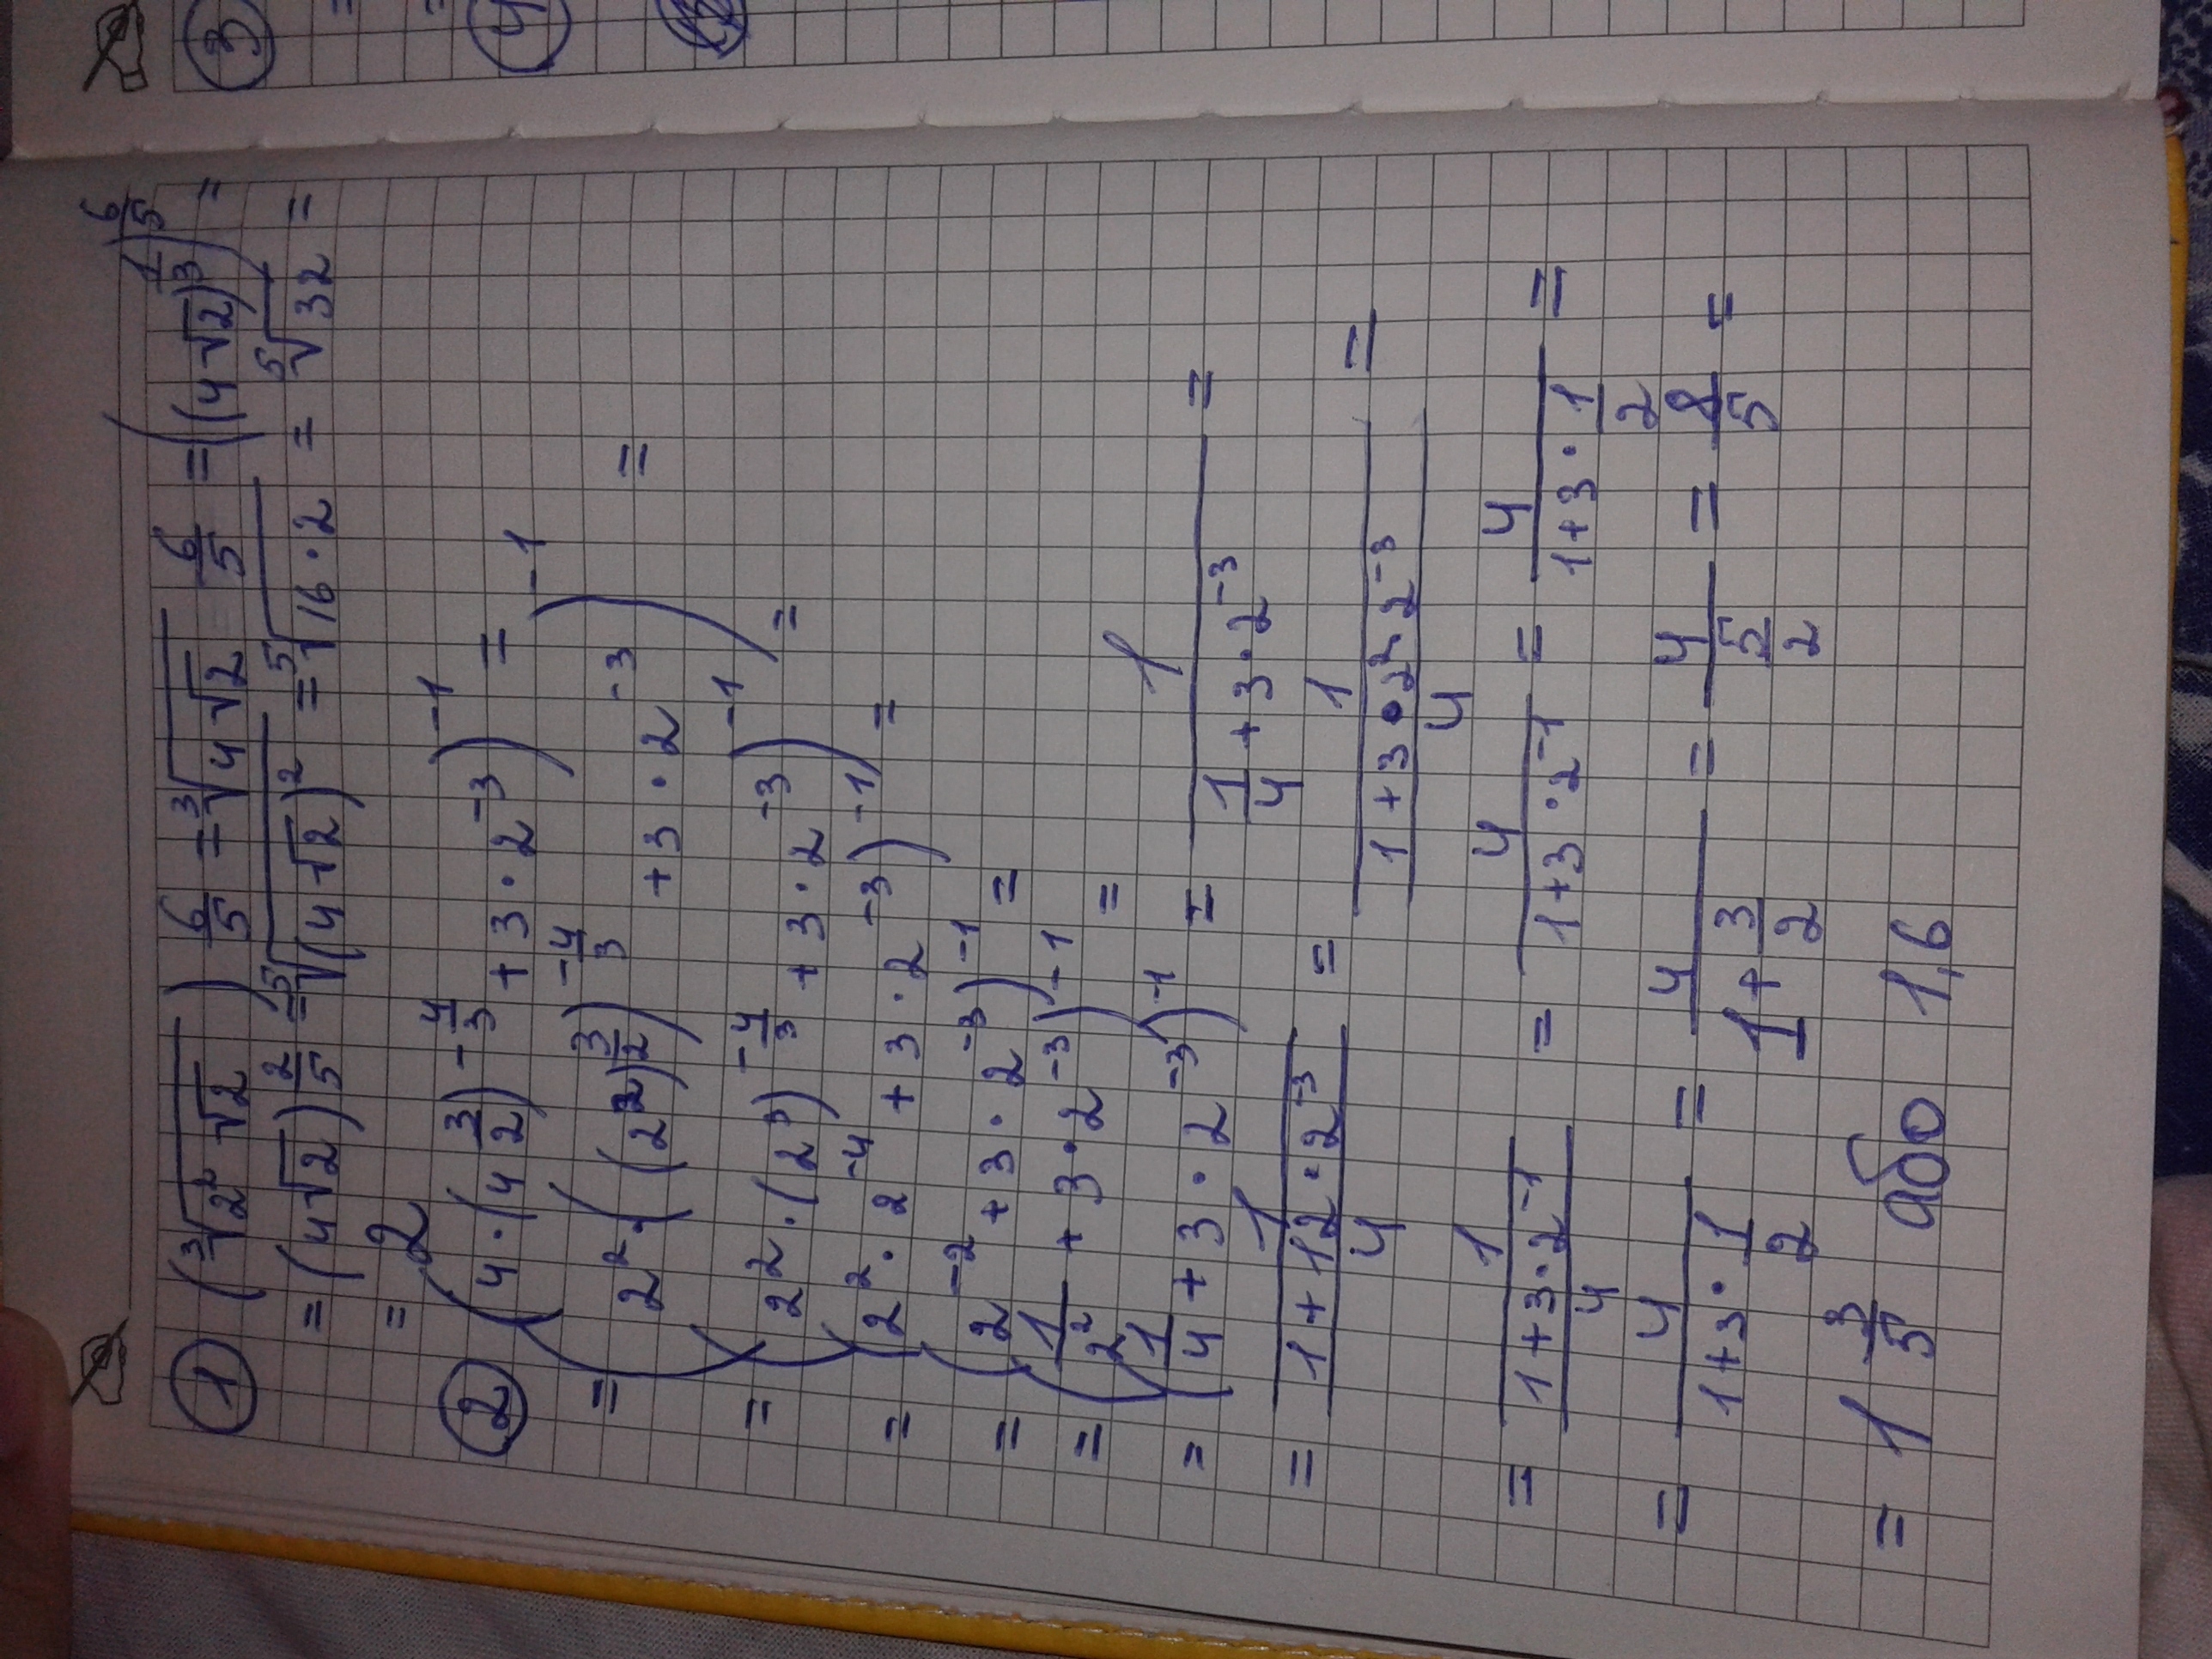 ① (∛(2²√2))^(6/5) = ∛(4√2)^(6/5) = ((4√2)^(1/3))^(6/5) =
= (4√2)^(2/5) = ⁵√((4√2)²) = ⁵√(16·2) = ⁵√32 =
= 2
② (4·(4^(3/2))^(-4/3) + 3·2^(-3))^(-1) =
= (2²·((2²)^(3/2))^(-4/3) + 3·2^(-3))^(-1) =
= (2²·(2³)^(-4/3) + 3·2^(-3))^(-1) =
= (2²·2^(-4) + 3·2^(-3))^(-1) =
= (2^(-2) + 3·2^(-3))^(-1) =
= (1/2² + 3·2^(-3))^(-1) =
= (1/4 + 3·2^(-3))^(-1) = 1/(1/4 + 3·2^(-3)) =
= 1/((1+12·2^(-3))/4) = 1/((1+3·2²·2^(-3))/4) =
= 1/((1+3·2^(-1))/4) = 4/(1+3·2^(-1)) = 4/(1+3·1/2) =
= 4/(1+3·1/2) = 4/(1+3/2) = 4/(5/2) = 8/5 =
= 1 3/5 або 1,6
③
=
=
④